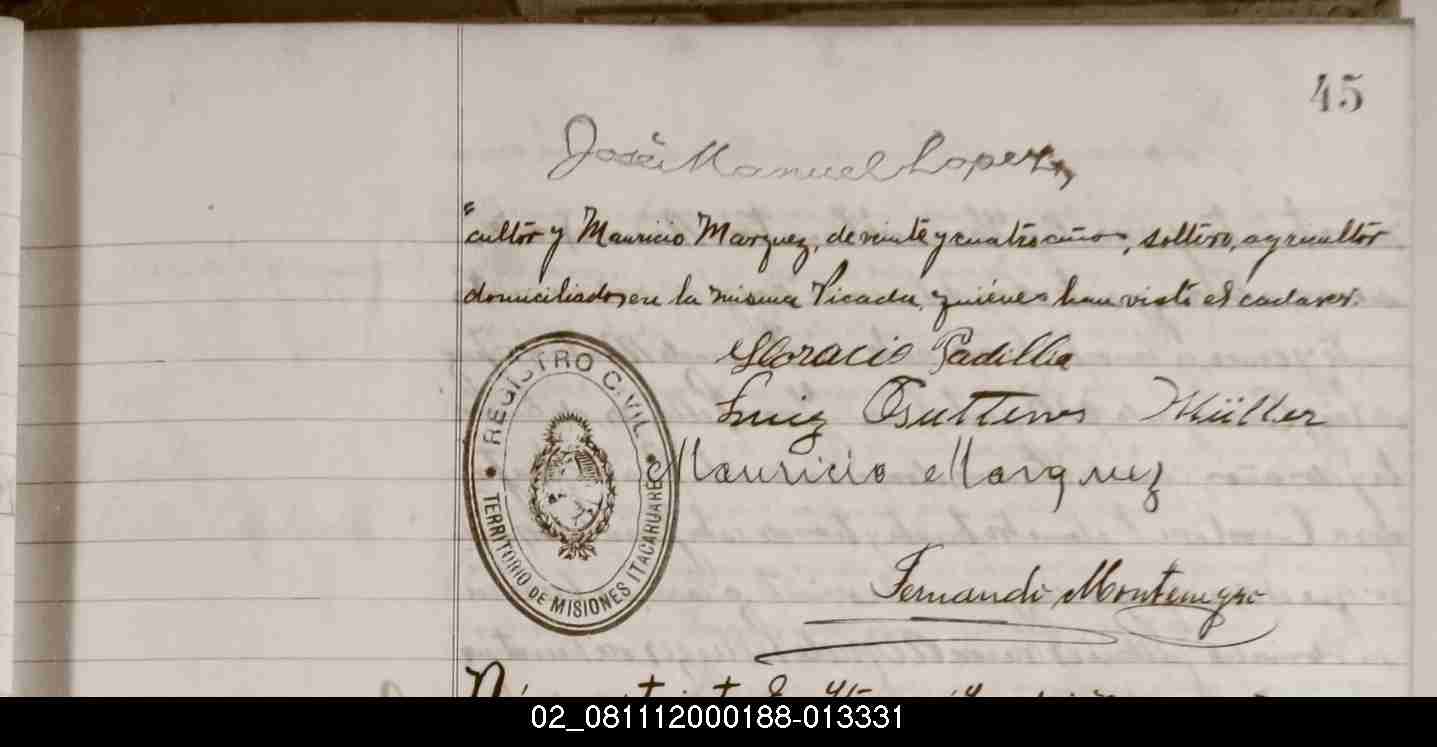 45
José Manuel Lopez,
cultor y Mauricio Marquez, de veinte y cuatro años, soltero, agricultor
domiciliados en la misma Picada, quiénes han visto el cadaver.
Horacio Padilla
Luiz Müller
Mauricio Marquez
REGISTRO CIVIL
TERRITORIO DE MISIONES ITACARUARÉ
Fernando Montenegro
02_081112000188-013331